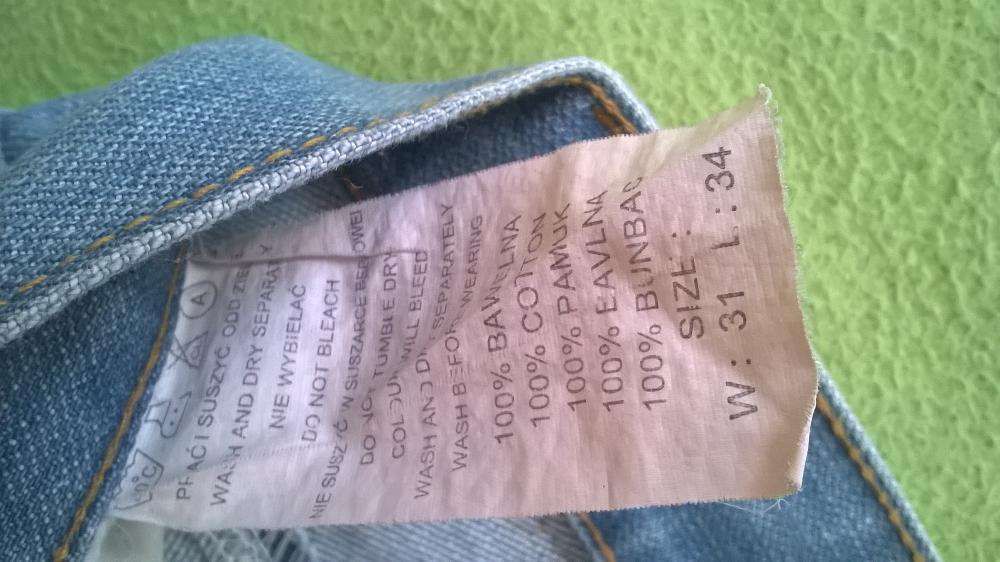 A
PRAĆ I SUSZYĆ ODDZIE
WASH AND DRY SEPARA Y
NIE WYBIELAĆ
DO NOT BLEACH
NIE SUSZYĆ W SUSZARCE BĘBNOWEJ
DO NOT TUMBLE DRY
COLOUR WILL BLEED
WASH AND DRY SEPARATELY
WASH BEFORE WEARING
100% BAWEŁNA
100% COTTON
100% PAMUK
100% BAVLNA
100% BUNBAC
SIZE:
W: 31 L: 34